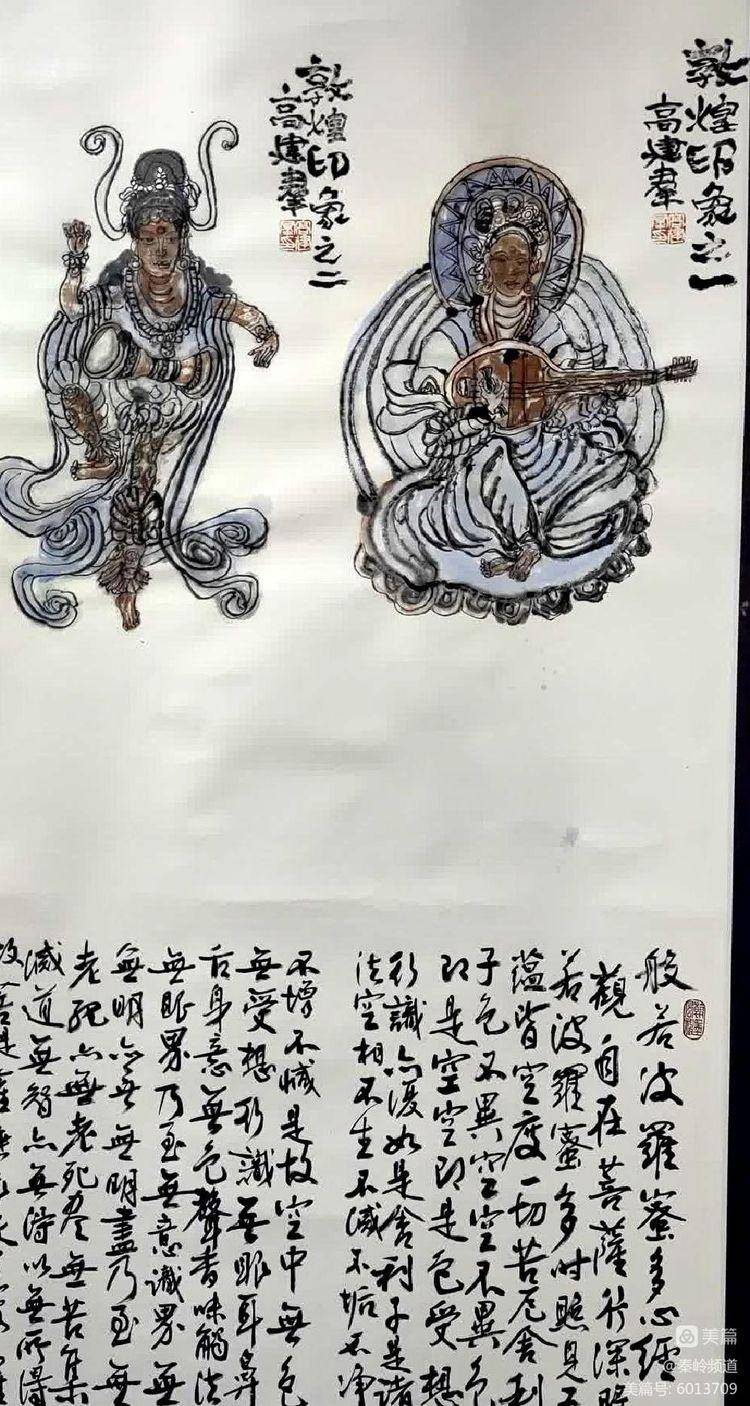 敦煌印象之一
高建群
敦煌印象之二
高建群
般若波羅蜜多心經
觀自在菩薩行深般
若波羅蜜多时照見五
蕴皆空度一切苦厄舍利
子色不異空空不異色
即是空空即是色受想
行識亦復如是舍利子是诸
法空相不生不滅不垢不净
不增不減是故空中無色
無受想行識無眼耳鼻
舌身意無色聲香味觸法
無眼界乃至無意識界無
無明亦無無明盡乃至無
老死亦無老死尽無苦集
滅道無智亦無得以無所得
故菩提薩埵
美篇
@秦岭频道
美篇号: 6013709